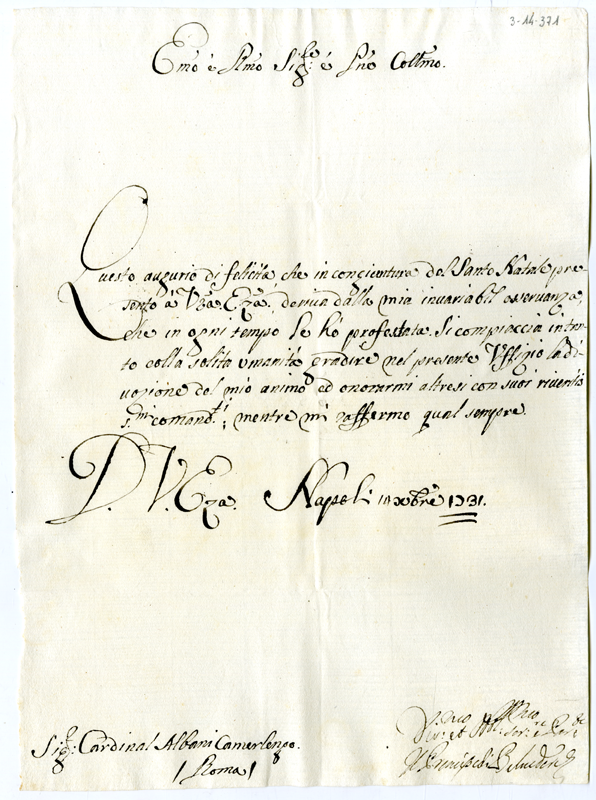 3-14-371
Emo è Rmo Sigre é Pne Colmo.
Questo augurio di felicità, che in congiontura del Santo Natale pre-
sento à Vra. Eza., deriva dalla mia invariabil osservanza,
che in ogni tempo le hó professata. Si compiaccia intan-
to colla solita umanità gradire nel presente Uffizio la di-
vozione del mio animo ed onorarmi altresi con suoi riveritis-
s.mi comand.ti; mentre mi raffermo qual sempre
D. V. Eza. Napoli 1731.
Sigre Cardinal Albani Camerlengo.
/ Roma /
Il Principe di